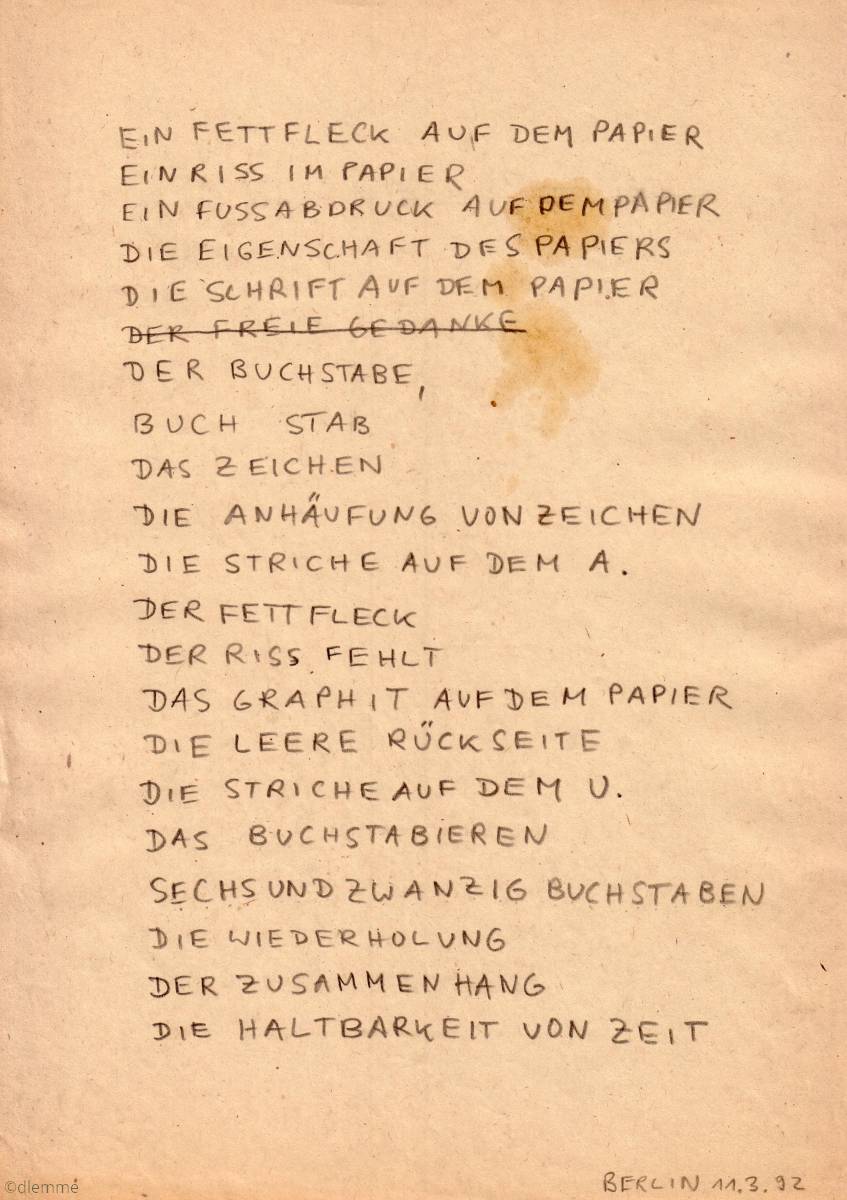 EIN FETTFLECK AUF DEM PAPIER
EIN RISS IM PAPIER
EIN FUSSABDRUCK AUF DEM PAPIER
DIE EIGENSCHAFT DES PAPIERS
DIE SCHRIFT AUF DEM PAPIER
DER FREIE GEDANKE
DER BUCHSTABE,
BUCH STAB
DAS ZEICHEN
DIE ANHÄUFUNG VON ZEICHEN
DIE STRICHE AUF DEM A.
DER FETTFLECK
DER RISS FEHLT
DAS GRAPHIT AUF DEM PAPIER
DIE LEERE RÜCKSEITE
DIE STRICHE AUF DEM U.
DAS BUCHSTABIEREN
SECHSUNDZWANZIG BUCHSTABEN
DIE WIEDERHOLUNG
DER ZUSAMMENHANG
DIE HALTBARKEIT VON ZEIT
BERLIN 11.3.92
©dlemmé